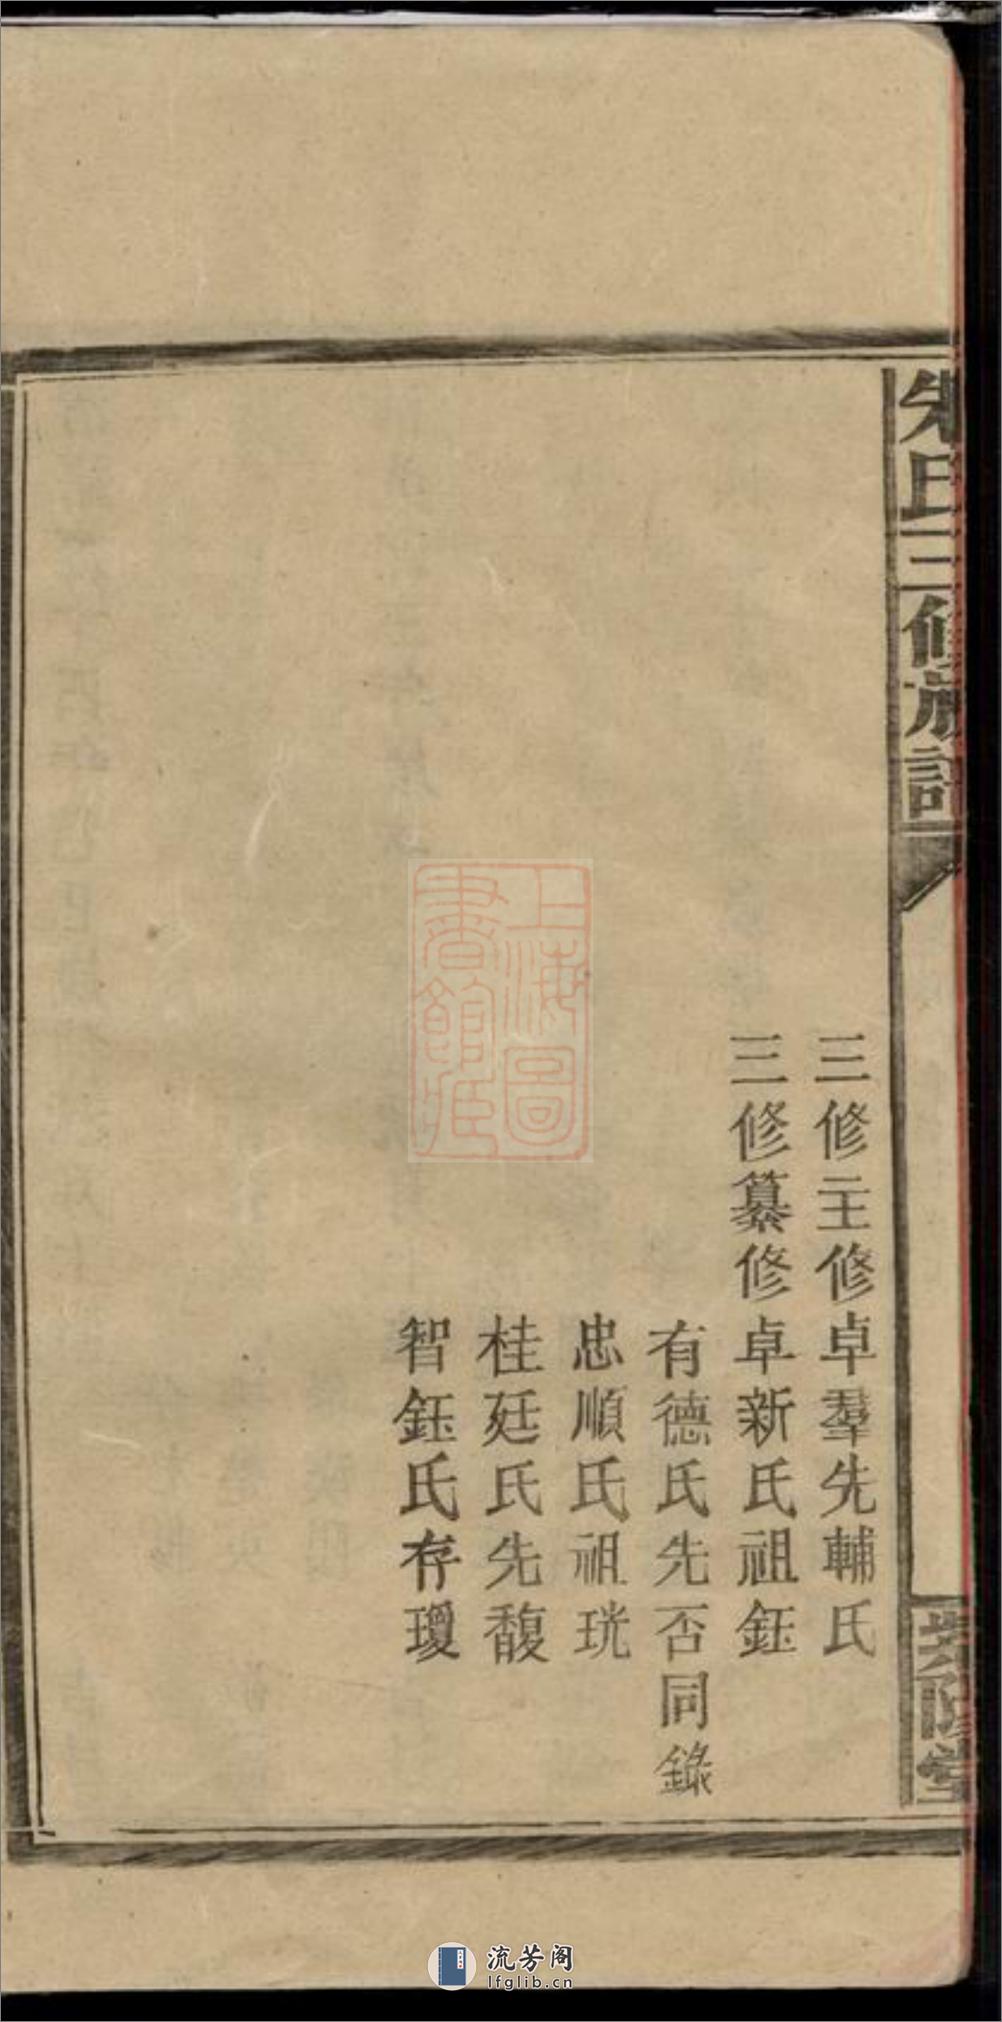 朱氏三修族譜
三修主修卓羣先輔氏
三修纂修卓新氏祖鈺
有德氏先否同錄
忠順氏祖珖
桂廷氏先馥
智鈺氏存瓊
紫陽堂
上海圖
書館藏
流芳阁
lfglib.cn